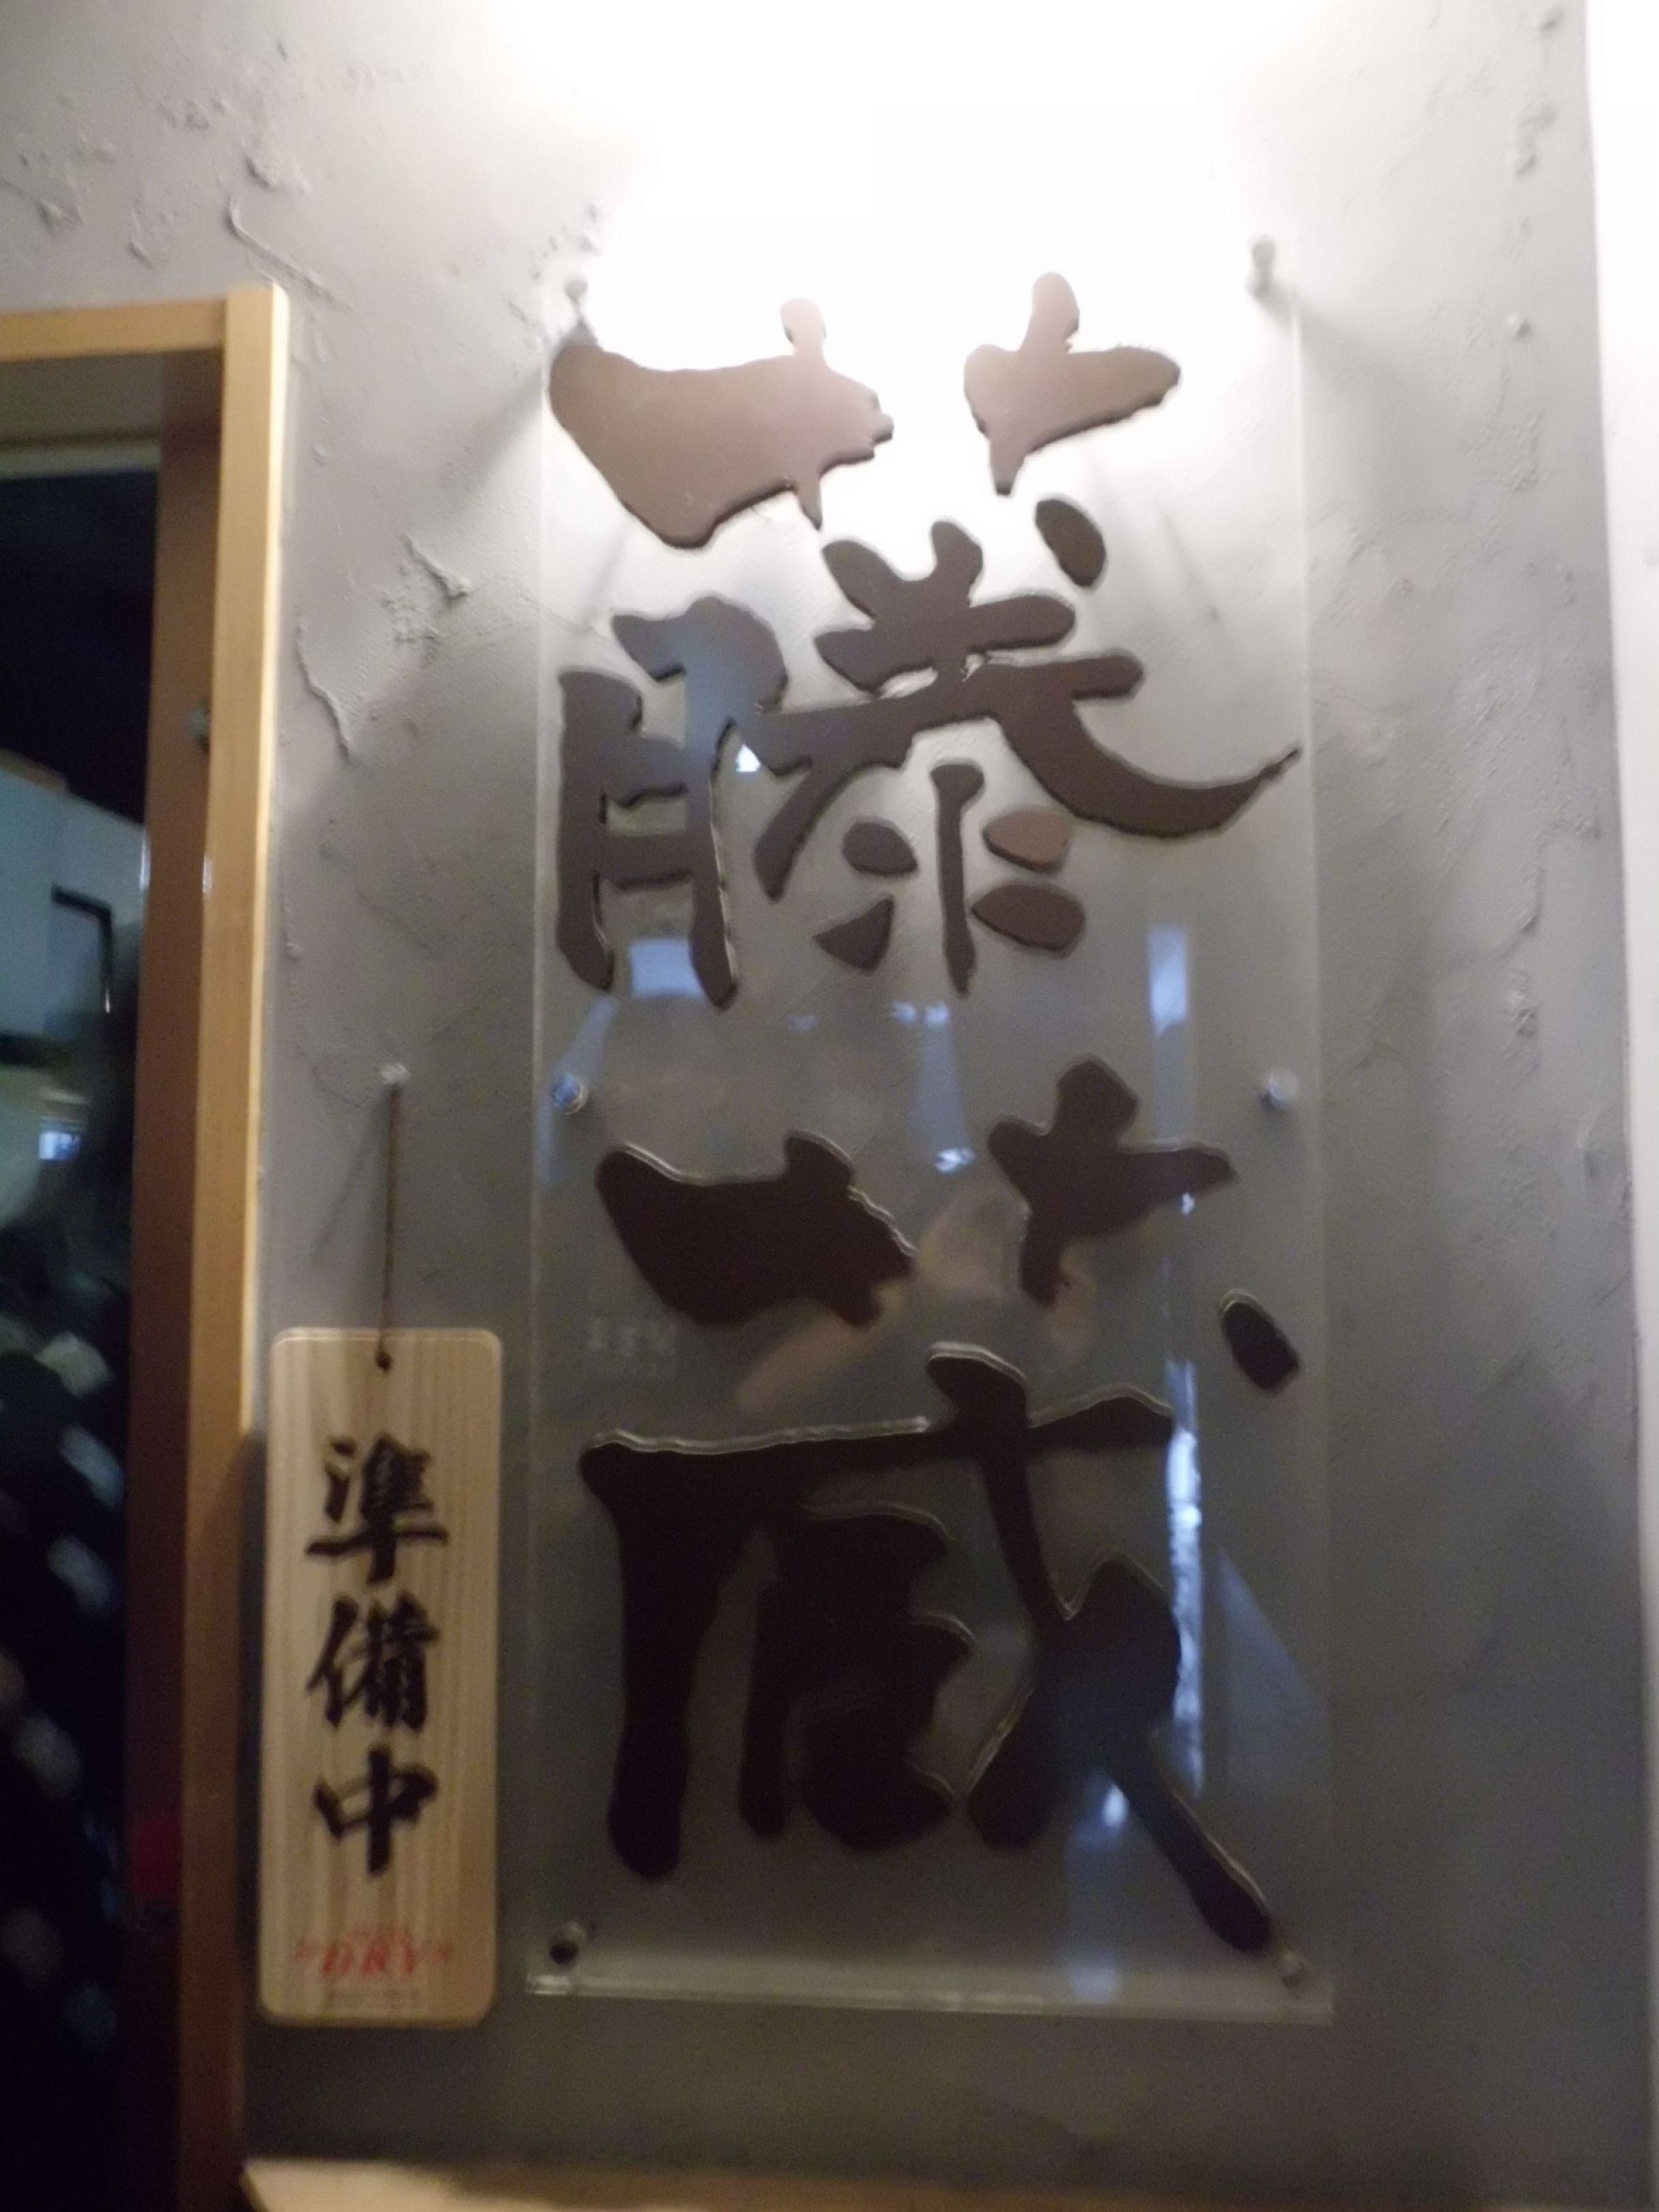 藤蔵
準備中
DRY